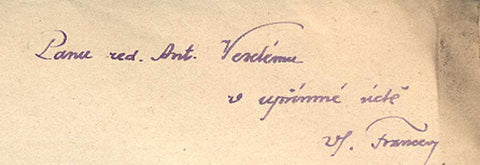 Panu red. Ant. Veselému
v upřímné úctě
Vl. Francev